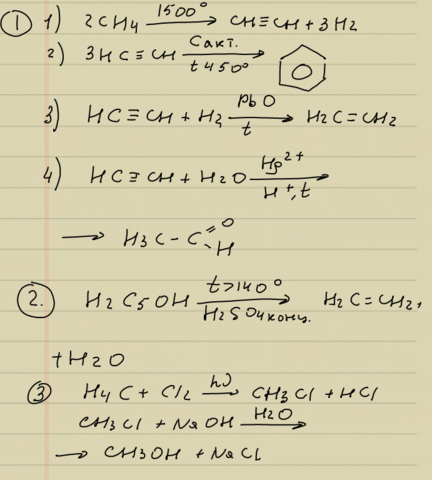 ① 1) 2CH4 1500° → CH≡CH + 3H2
2) 3HC≡CH Cакт. t450° →
3) HC≡CH + H2 PbO t → H2C=CH2
4) HC≡CH + H2O Hg2+ H+,t →
→ H3C-C=O-H
②. H2C5OH t>140° H2SO4конц. → H2C=CH2+
+H2O
③ H4C + Cl2 hν → CH3Cl + HCl
CH3Cl + NaOH H2O →
→ CH3OH + NaCl